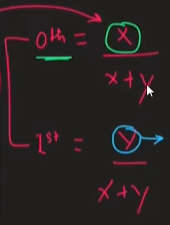 0th = x
x + y
1st = y
x + y